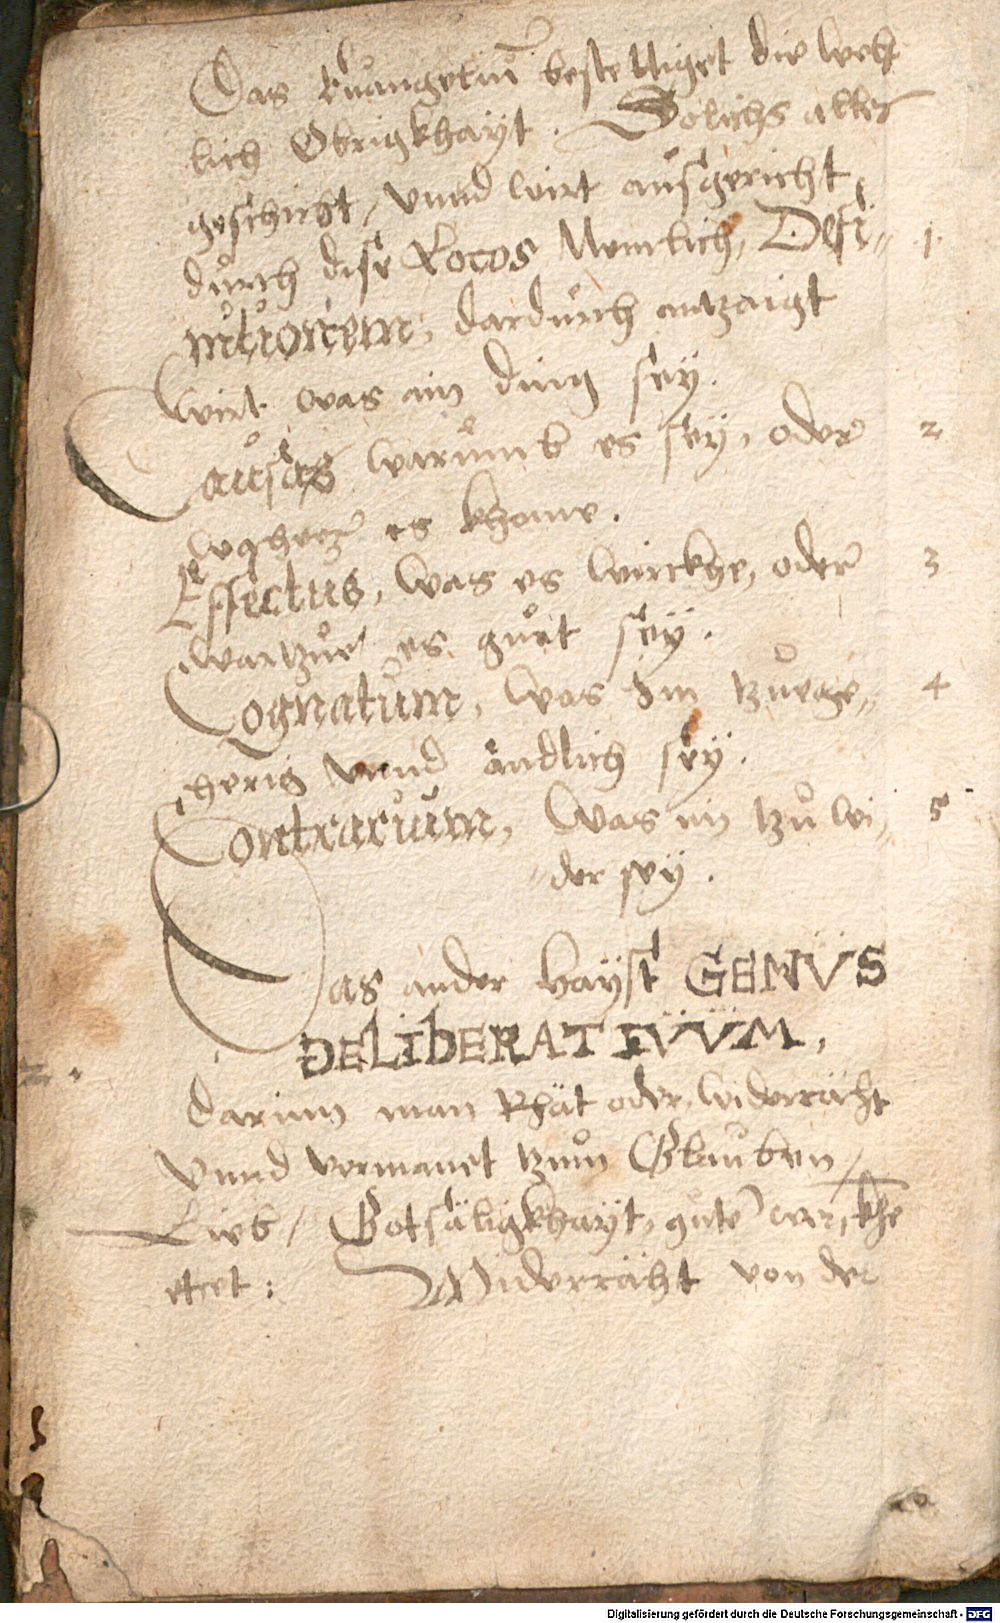 Das Euangeliū bestettiget die welt
lich Obrigkhayt. Solichs alles
geschicht, vnnd wirt außgericht,
durch dise Locos Nemlich, Defi= 1.
nitionem, dardurch antzaigt
wirt was ain ding sey.
Causas warůmb es sey, oder 2
woher es khome.
Effectus, was es wirckhe, oder 3
wartzue es guͤt sey.
Cognatum, was im tzuege= 4
herig vnnd ändlich sey.
Contrarium, was im tzu wi= 5
der sey.
Das ander hayst GENVS
DELIBERATIVVM,
2.
darinn man Rhät oder widerräht
vnnd vermanet tzum Glauben,
Lieb, Gotsäligkhayt, gute werckhe
etcet: Widerräht von der
Digitalisierung gefördert durch die Deutsche Forschungsgemeinschaft - DFG